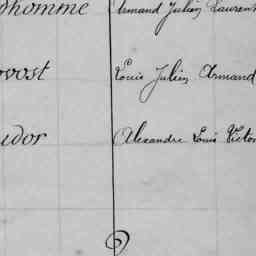 dhomme Armand Julien Laurent
ovost Louis Julien Armand
udor Alexandre Louis Victor